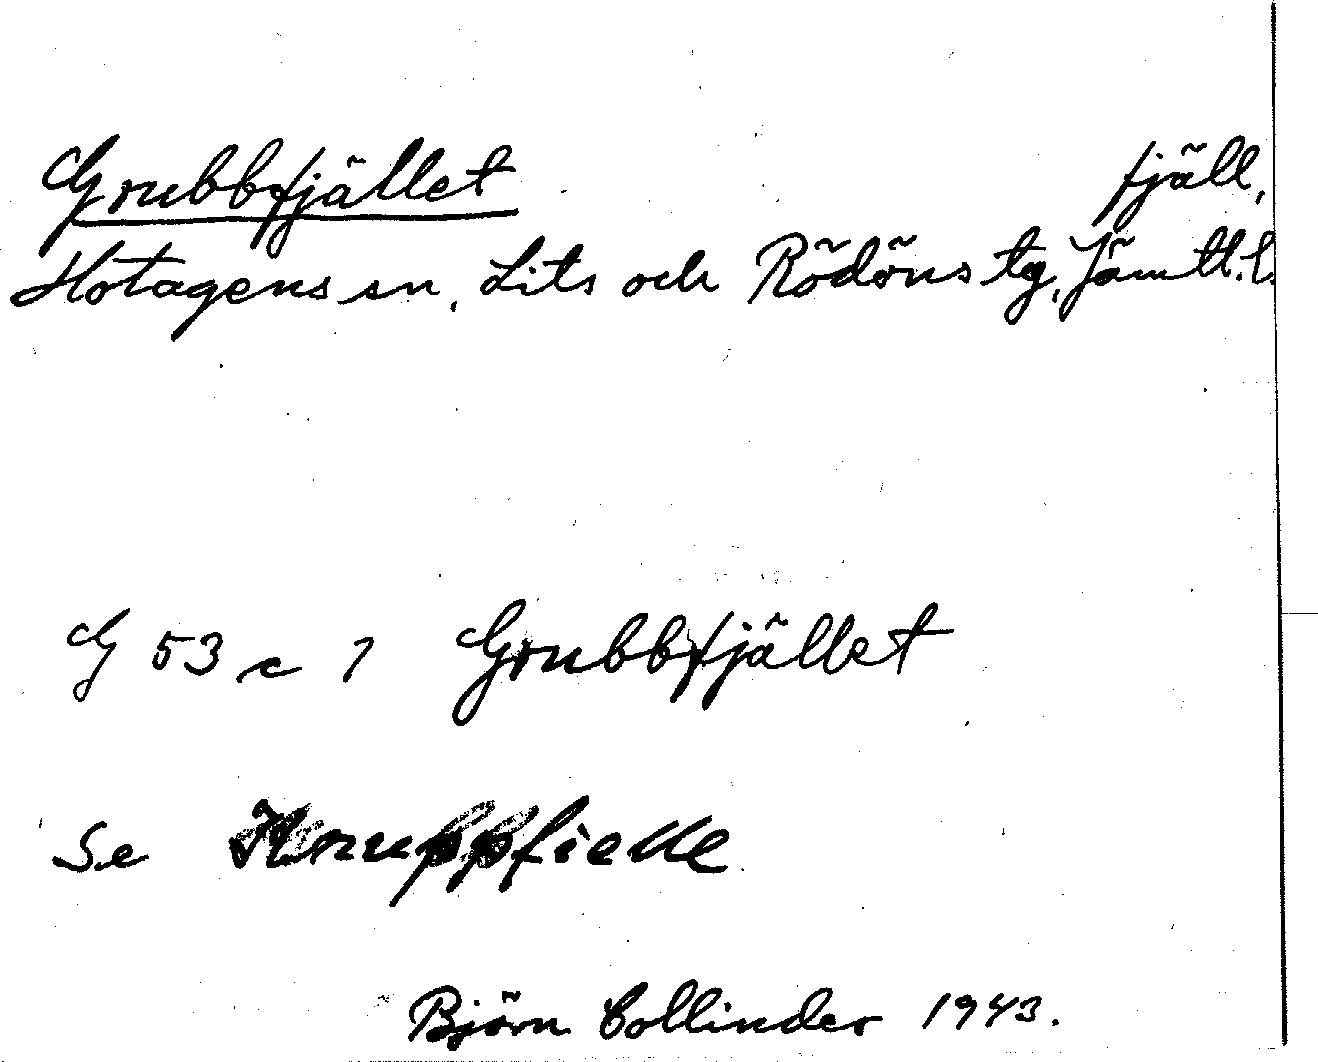 Grubbfjället fjäll,
Hotagens sn, Lits och Rödöns tg, Jämtl. l.
G 53 c 1 Grubbfjället
Se Kruppfielle
Björn Collinder 1943.